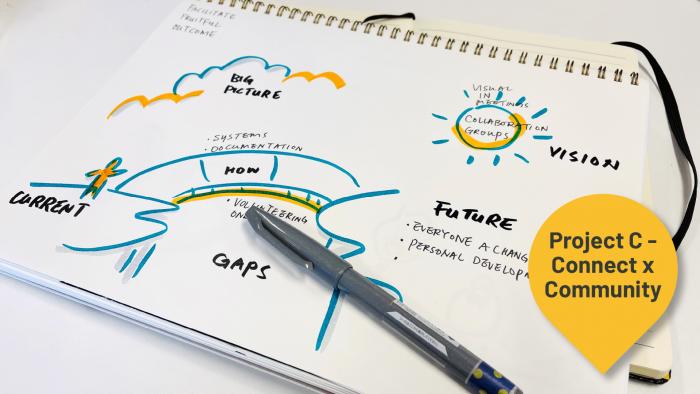 FACILITATE
FRUITFUL
OUTCOME
BIG
PICTURE
VISUAL
IN
MEETINGS
COLLABORATION
GROUPS
VISION
• SYSTEMS
• DOCUMENTATION
HOW
CURRENT
• VOLUNTEERING
GAPS
FUTURE
• EVERYONE A
• PERSONAL
Project C -
Connect x
Community